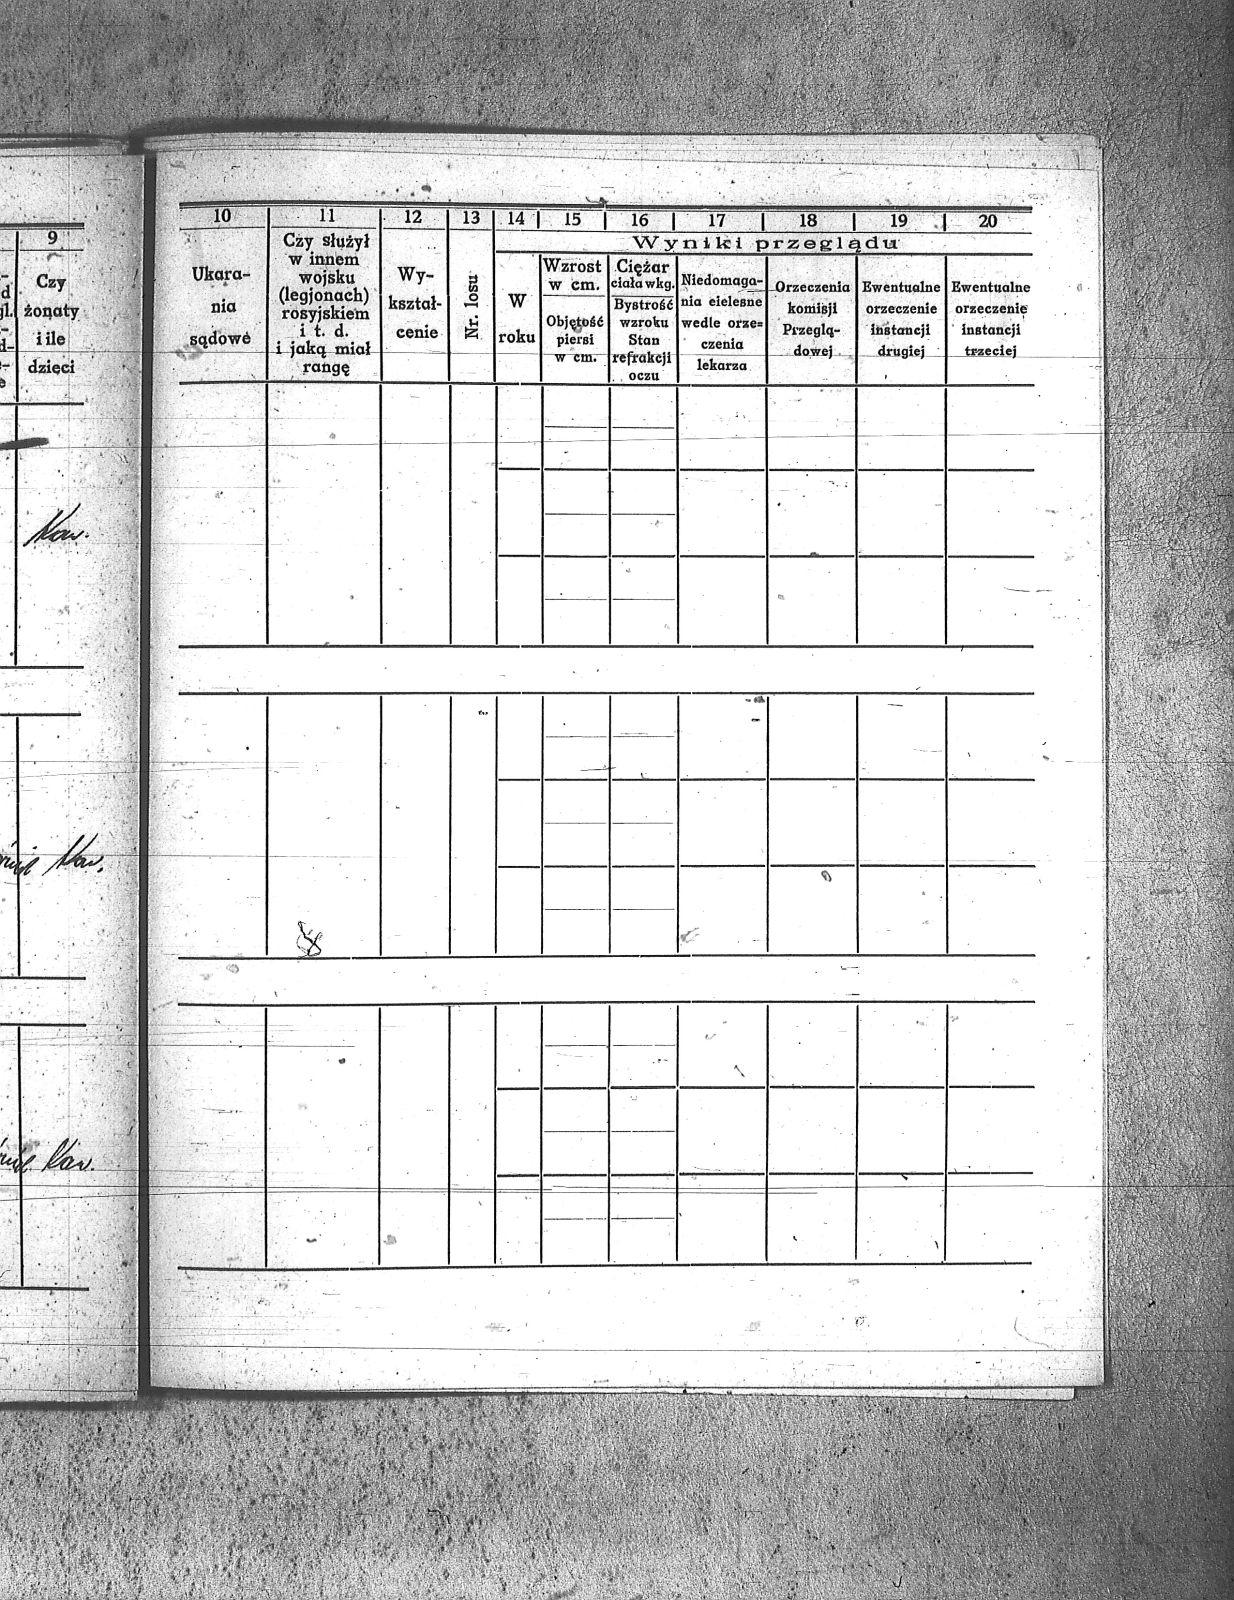 9
Czy
żonaty
i ile
dzięci
Kaw.
Kaw.
Kaw.
10
11
12
13
14
15
16
17
18
19
20
Wyniki przeglądu
Ukara-
nia
sądowe
Czy służył
w innem
wojsku
(legjonach)
rosyjskiem
i t. d.
i jaką miał
rangę
Wy-
kształ-
cenie
Nr. losu
W
roku
Wzrost
w cm.
Objętość
piersi
w cm.
Ciężar
ciała w kg.
Bystrość
wzroku
Stan
refrakcji
oczu
Niedomaga-
nia cielesne
wedle orze=
czenia
lekarza
Orzeczenia
komisji
Przeglą-
dowej
Ewentualne
orzeczenie
instancji
drugiej
Ewentualne
orzeczenie
instancji
trzeciej